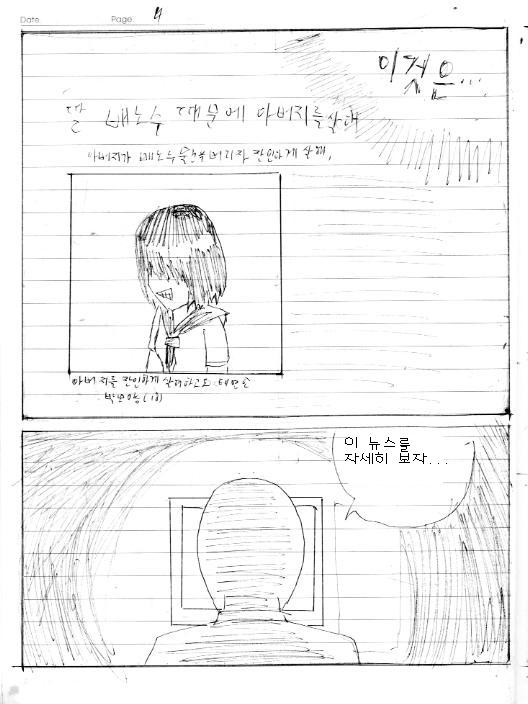 Date
Page 4
이것은...
딸 배노수 때문에 아버지를 살해
아버지가 배노수를 버리자 잔인하게 살해,
아버지를 잔인하게 살해하고도 태연한
이 뉴스를
자세히 보자...